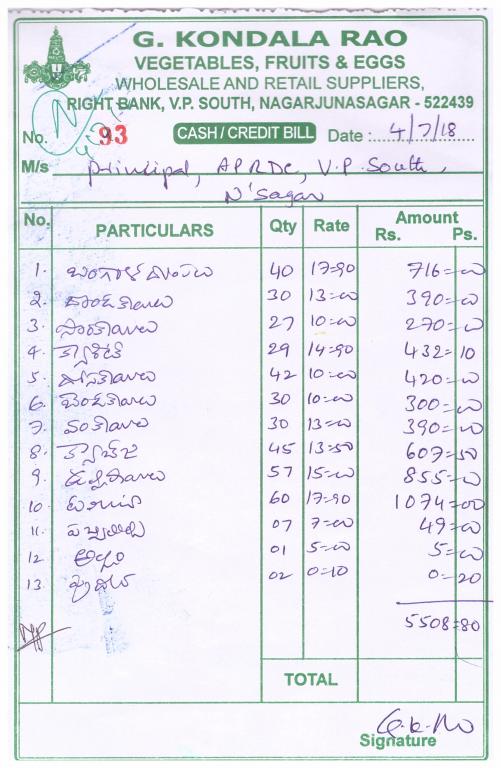 G. KONDALA RAO
VEGETABLES, FRUITS & EGGS
WHOLESALE AND RETAIL SUPPLIERS,
RIGHT BANK, V.P. SOUTH, NAGARJUNASAGAR - 522439
No. 93 CASH / CREDIT BILL Date : 4/7/18
M/s Principal, APRDC, V.P. South,
N'Sagar
No. PARTICULARS Qty Rate Amount
Rs. Ps.
1. బంగాళ దుంపలు 40 17=90 716=00
2. దొండకాయలు 30 13=00 390=00
3. సొరకాయలు 27 10=00 270=00
4. క్యారెట్ 29 14=90 432=10
5. దోసకాయలు 42 10=00 420=00
6. బెండకాయలు 30 10=00 300=00
7. వంకాయలు 30 13=00 390=00
8. క్యాబేజి 45 13=50 607=50
9. ఉల్లిపాయలు 57 15=00 855=00
10. టమాటా 60 17=90 1074=00
11. పచ్చిమిర్చి 07 7=00 49=00
12 అల్లం 01 5=00 5=00
13. పుదీన 02 0=10 0=20
5508=80
TOTAL
G.K.Rao
Signature